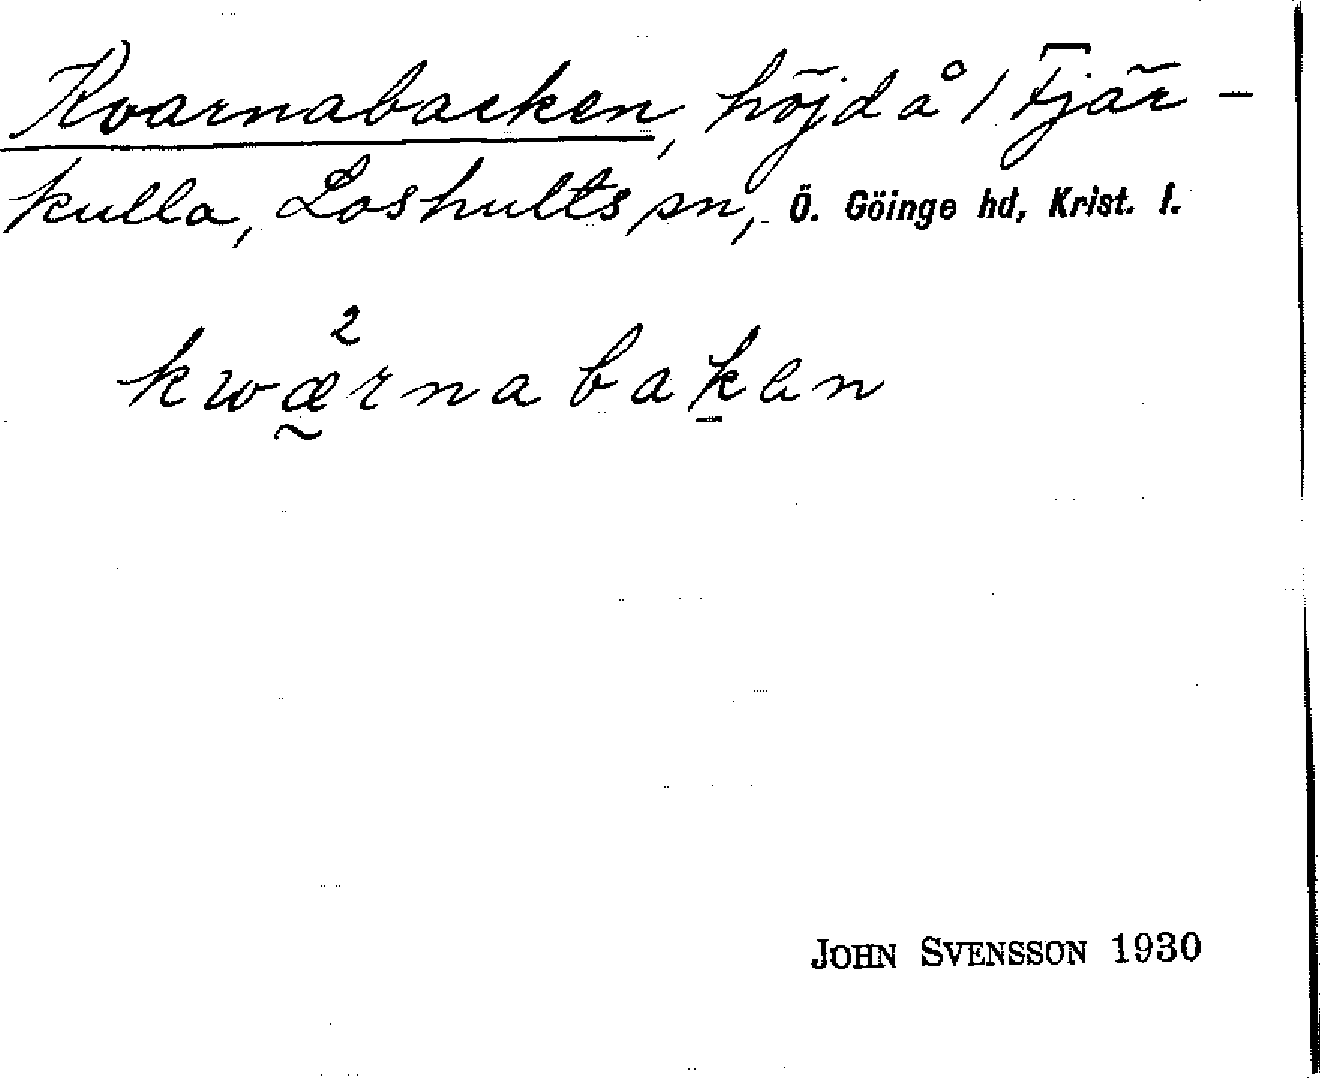 Kvarnabacken, höjd å 1 Tjär-
kulla, Loshults sn, Ö. Göinge hd, Krist. l.
2
kwærnabakan
JOHN SVENSSON 1930